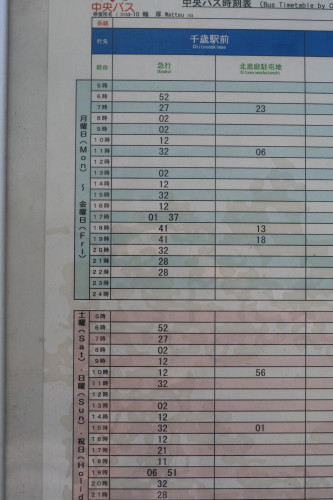 中央バス 中央バス時刻表 (Bus Timetable by C
停留所名 輪厚 Wattsu
系統
行先 千歳駅前
Chitoseekimae
経由 急行 北恵庭駐屯地
月曜日(Mon) ～ 金曜日(Fri)
5時
6時 52
7時 27 23
8時 02
9時 02
10時 12
11時 32 06
12時
13時 02
14時 12
15時 32
16時 12
17時 01 37
18時 41 13
19時 41 18
20時 32
21時 28
22時 28
23時
24時
土曜(Sat)・日曜(Sun)・祝日(Holid
5時
6時 52
7時 27
8時 02
9時 12
10時 12 56
11時 32
12時
13時 02
14時 12
15時 32 01
16時 12
17時 21
18時 11
19時 06 51
20時 32
21時 28